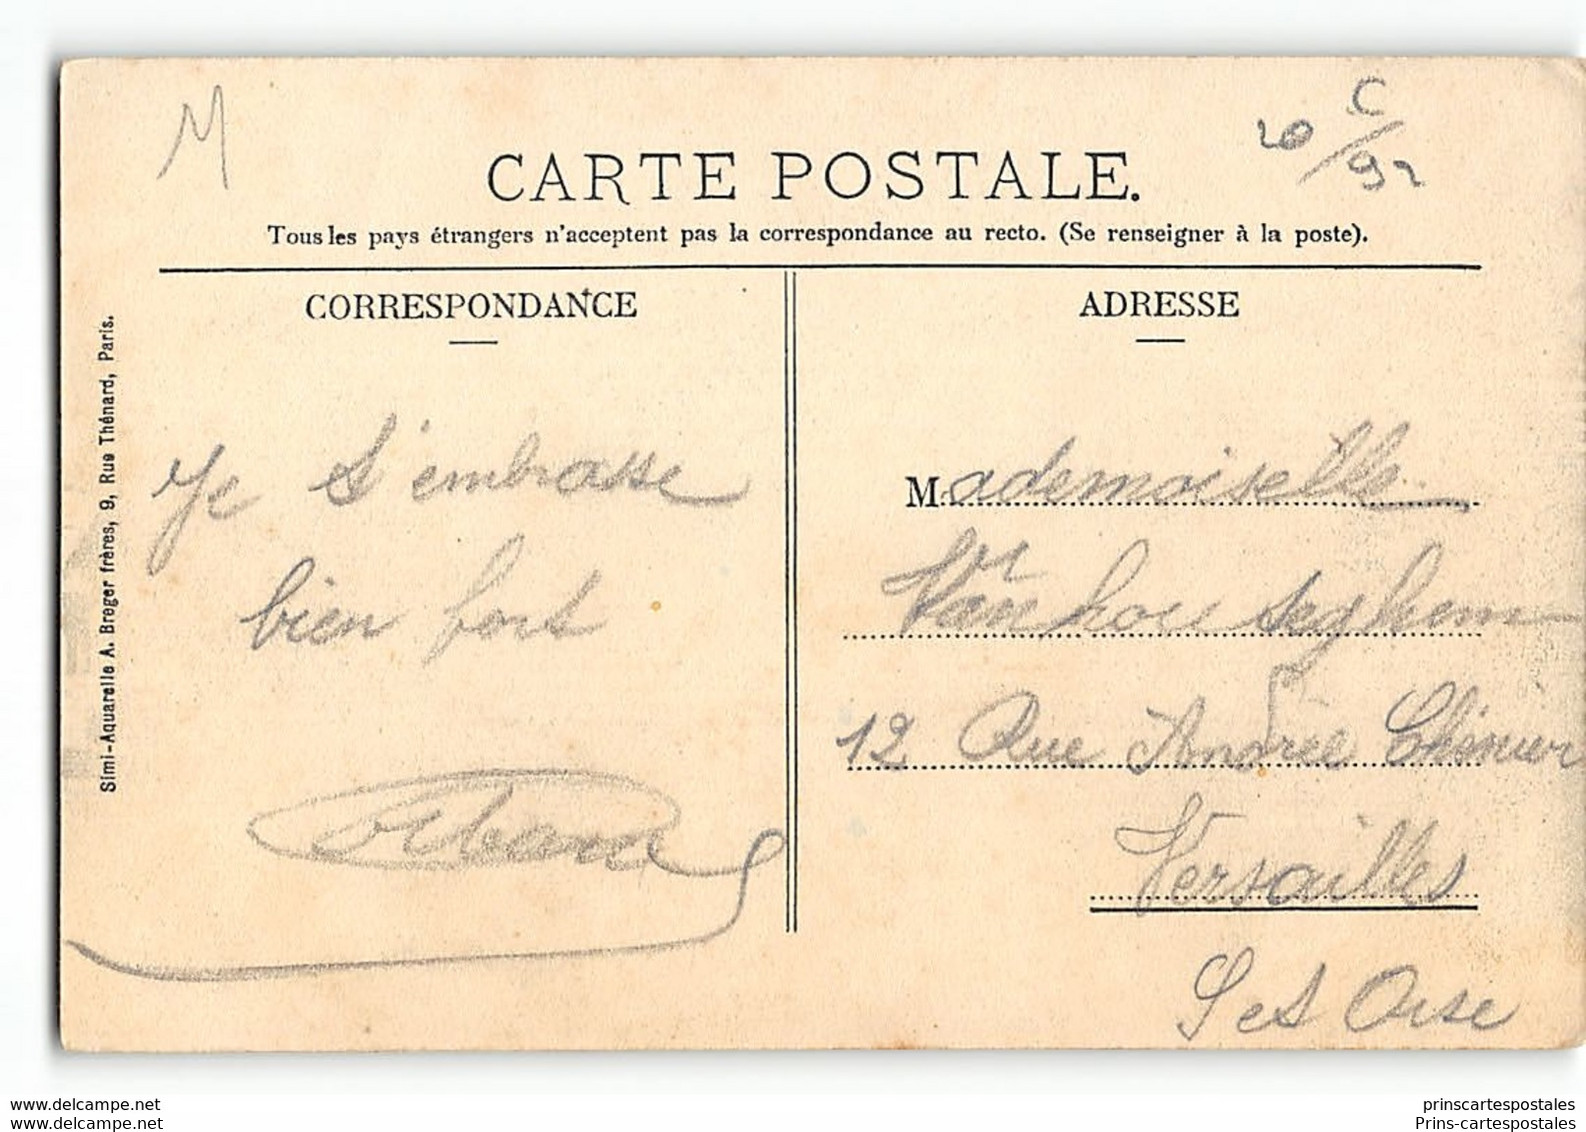 M
C
20/92
CARTE POSTALE.
Tous les pays étrangers n'acceptent pas la correspondance au recto. (Se renseigner à la poste).
CORRESPONDANCE
Je t'embrasse
bien fort
ADRESSE
Mademoiselle
12 Rue André Chénier
Versailles
S et Oise
Simi-Aquarelle A. Breger frères, 9, Rue Thénard, Paris.
www.delcampe.net
www.delcampe.net
prinscartespostales
Prins-cartespostales